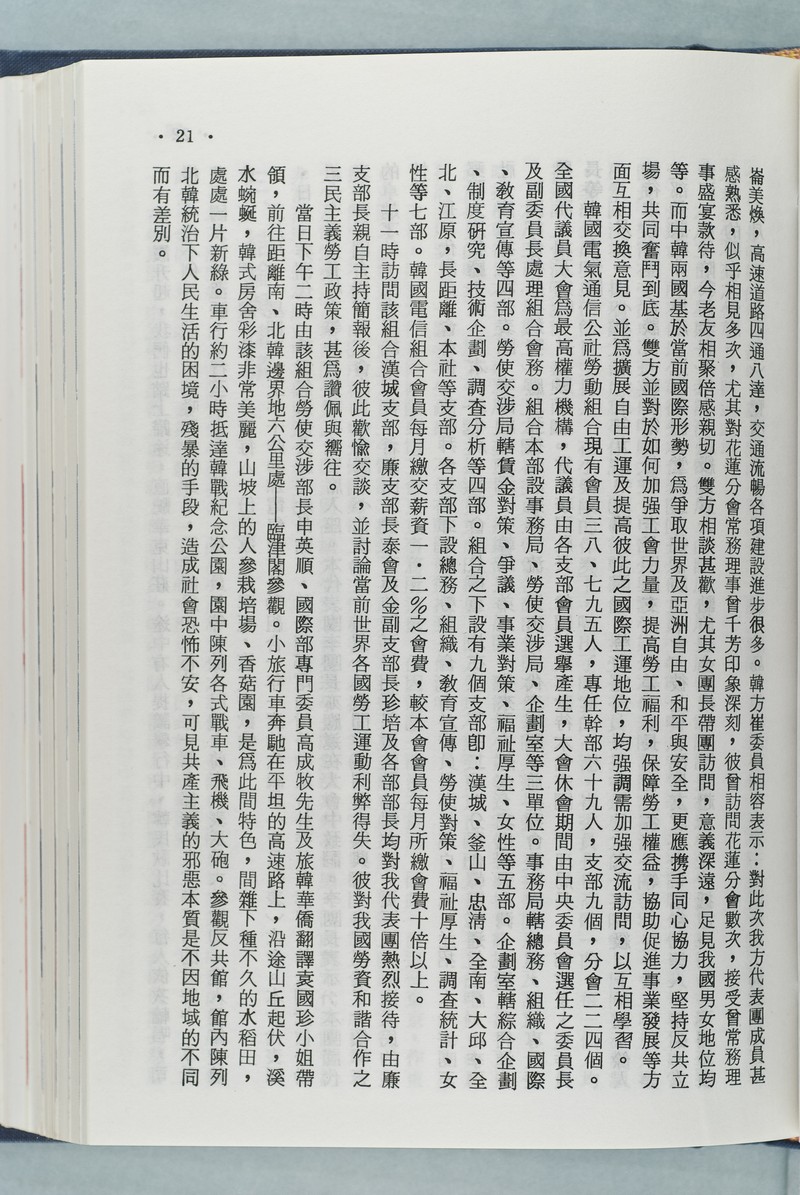 崙美煥，高速道路四通八達，交通流暢各項建設進步很多。韓方崔委員相容表示：對此次我方代表團成員甚
感熟悉，似乎相見多次，尤其對花蓮分會常務理事曾千芳印象深刻，彼曾訪問花蓮分會數次，接受曾常務理
事盛宴款待，今老友相聚倍感親切。雙方相談甚歡，尤其女團長帶團訪問，意義深遠，足見我國男女地位均
等。而中韓兩國基於當前國際形勢，爲爭取世界及亞洲自由、和平與安全，更應携手同心協力，堅持反共立
場，共同奮鬥到底。雙方並對於如何加强工會力量，提高勞工福利，保障勞工權益，協助促進事業發展等方
面互相交換意見。並爲擴展自由工運及提高彼此之國際工運地位，均强調需加强交流訪問，以互相學習。
韓國電氣通信公社勞動組合現有會員三八、七九五人，專任幹部六十九人，支部九個，分會二二四個。
全國代議員大會爲最高權力機構，代議員由各支部會員選擧產生，大會休會期間由中央委員會選任之委員長
及副委員長處理組合會務。組合本部設事務局、勞使交涉局、企劃室等三單位。事務局轄總務、組織、國際
、敎育宣傳等四部。勞使交涉局轄賃金對策、爭議、事業對策、福祉厚生、女性等五部。企劃室轄綜合企劃
、制度硏究、技術企劃、調查分析等四部。組合之下設有九個支部卽：漢城、釜山、忠淸、全南、大邱、全
北、江原，長距離、本社等支部。各支部下設總務、組織、敎育宣傳、勞使對策、福祉厚生、調查統計、女
性等七部。韓國電信組合會員每月繳交薪資一．二％之會費，較本會會員每月所繳會費十倍以上。
十一時訪問該組合漢城支部，廉支部長泰會及金副支部長珍培及各部部長均對我代表團熱烈接待，由廉
支部長親自主持簡報後，彼此歡愉交談，並討論當前世界各國勞工運動利弊得失。彼對我國勞資和諧合作之
三民主義勞工政策，甚爲讚佩與嚮往。
當日下午二時由該組合勞使交涉部長申英順、國際部專門委員高成牧先生及旅韓華僑翻譯袁國珍小姐帶
領，前往距離南、北韓邊界地六公里處——臨津閣參觀。小旅行車奔馳在平坦的高速路上，沿途山丘起伏，溪
水蜿蜒，韓式房舍彩漆非常美麗，山坡上的人參栽培場、香菇園，是爲此間特色，間雜下種不久的水稻田，
處處一片新綠。車行約二小時抵達韓戰紀念公園，園中陳列各式戰車、飛機、大砲。參觀反共館，館內陳列
北韓統治下人民生活的困境，殘暴的手段，造成社會恐怖不安，可見共產主義的邪惡本質是不因地域的不同
而有差別。
• 21 •